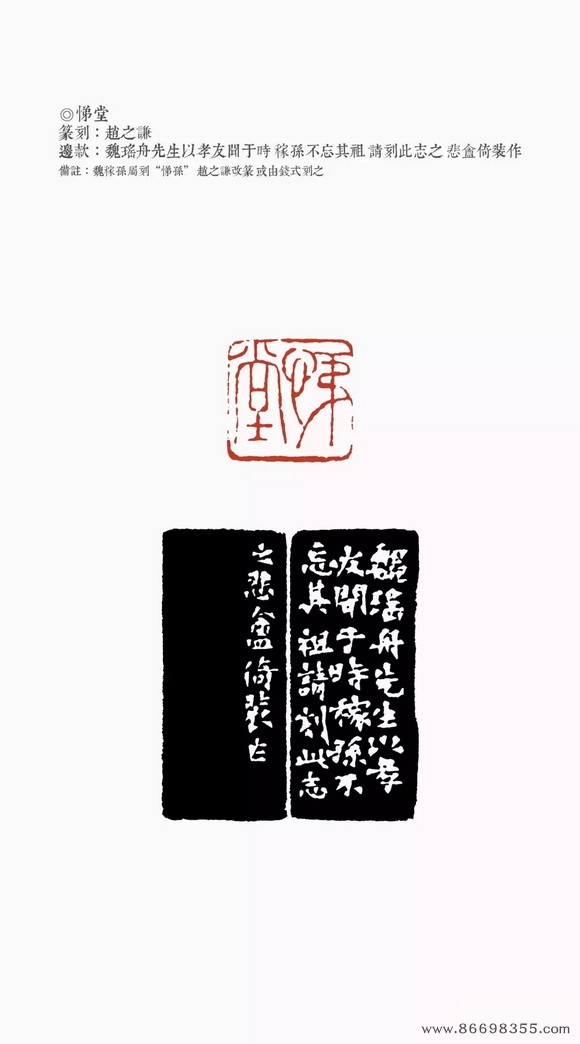 ◎悌堂
篆刻：趙之謙
邊款：魏瑤舟先生以孝友聞于時 稼孫不忘其祖 請刻此志之 悲盦倚裝作
備註：魏稼孫屬刻“悌孫” 趙之謙改篆 或由錢式刻之
悌堂
魏瑤舟先生以孝
友聞于時稼孫不
忘其祖請刻此志
之悲盦倚裝作
www.86698355.com